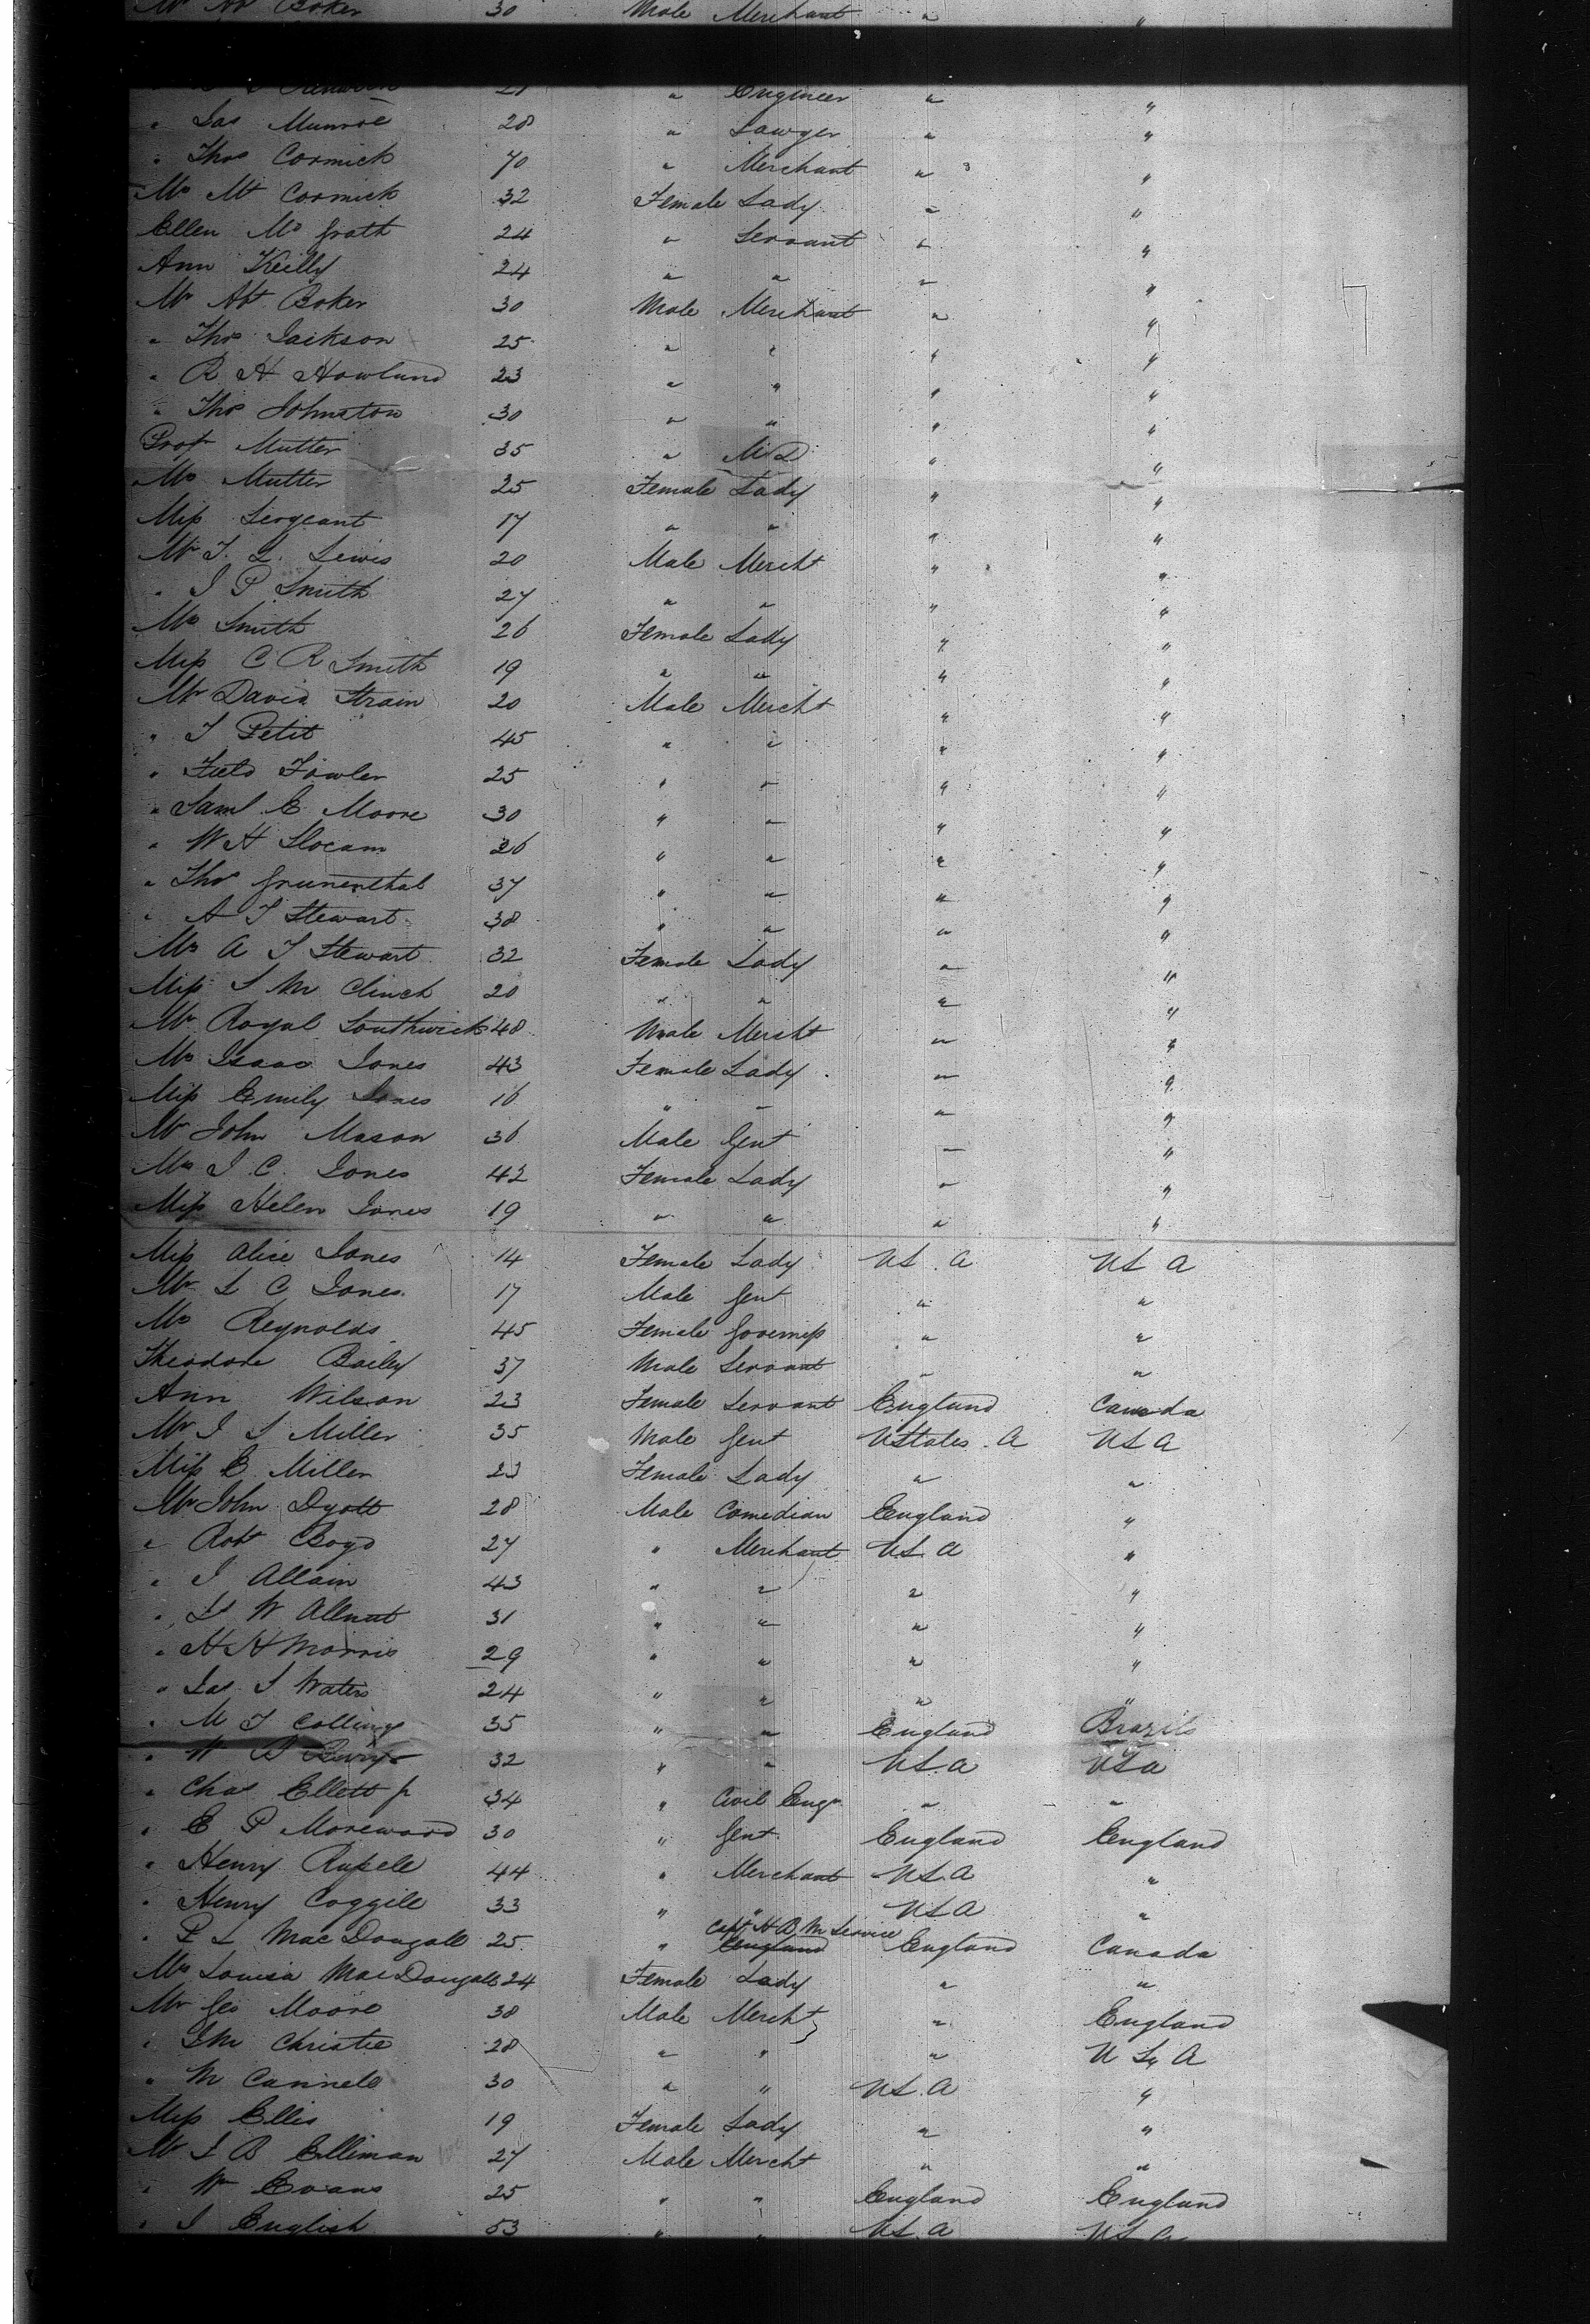 Baker 30 Male Merchant " "
21 " Engineer " "
" Jas Munroe 28 " Lawyer " "
" Thos Cormick 70 " Merchant " "
Mrs Mt Cormick 32 Female Lady " "
Ellen Mc Grath 24 " Servant " "
Ann Keilly 24 " " " "
Mr Baker 30 Male Merchant " "
" Thos Jackson 25 " " " "
" R H Howland 23 " " " "
" Thos Johnston 30 " " " "
Prof Mutter 35 " M.D " "
Mrs Mutter 25 Female Lady " "
Miss Sergeant 17 " " " "
Mr T. L. Lewis 20 Male Mercht " "
" J P Smith 27 " " " "
Mrs Smith 26 Female Lady " "
Miss C R Smith 19 " " " "
Mr David Strain 20 Male Mercht " "
" J Petit 45 " " " "
" Field Fowler 25 " " " "
" Saml E Moore 30 " " " "
" W H Slocam 26 " " " "
" Thos Grunenthal 37 " " " "
" A T Stewart 38 " " " "
Mrs A T Stewart 32 Female Lady " "
Miss S Mc Clinch 20 " " " "
Mr Royal Southwick 48 Male Mercht " "
Mrs Isaac Jones 43 Female Lady " "
Miss Emily Jones 16 " " " "
Mr John Mason 36 Male Gent " "
Mrs J C. Jones 42 Female Lady " "
Miss Helen Jones 19 " " " "
Miss Alice Jones 14 Female Lady U S. A U S A
Mr S C Jones 17 Male Gent " "
Mrs Reynolds 45 Female Governess " "
Theodore Bailey 37 Male Servant " "
Ann Wilson 23 Female Servant England Canada
Mr J S Miller 35 Male Gent UStates. A U S A
Miss E Miller 23 Female Lady " "
Mr John Dyott 28 Male Comedian England "
" Robt Boyd 27 " Merchant U S. A "
" J Allain 43 " " " "
" W Allnut 31 " " " "
" H H Morris 29 " " " "
" Jas S Waters 24 " " " "
" M T Collings 35 " " England Brazils
" W B 32 " " U S. A U S A
" Chas Ellett jr 34 " Civil Engr " "
" E P Morewood 30 " Gent England England
" Henry Russell 44 " Merchant U S. A "
" Henry Coggill 33 " " U S A "
Capt H B M Service
" P L MacDougall 25 " England England Canada
Mrs Louisa MacDougall 24 Female Lady " "
Mr Geo Moore 38 Male Mercht " England
" Christie 28 " " " U S. A
" M Cannell 30 " " U S. A "
Miss Ellis 19 Female Lady " "
Mr J B Elliman 27 Male Mercht " "
" Wm Evans 25 " " England England
" J English 53 " " U S. A U S A